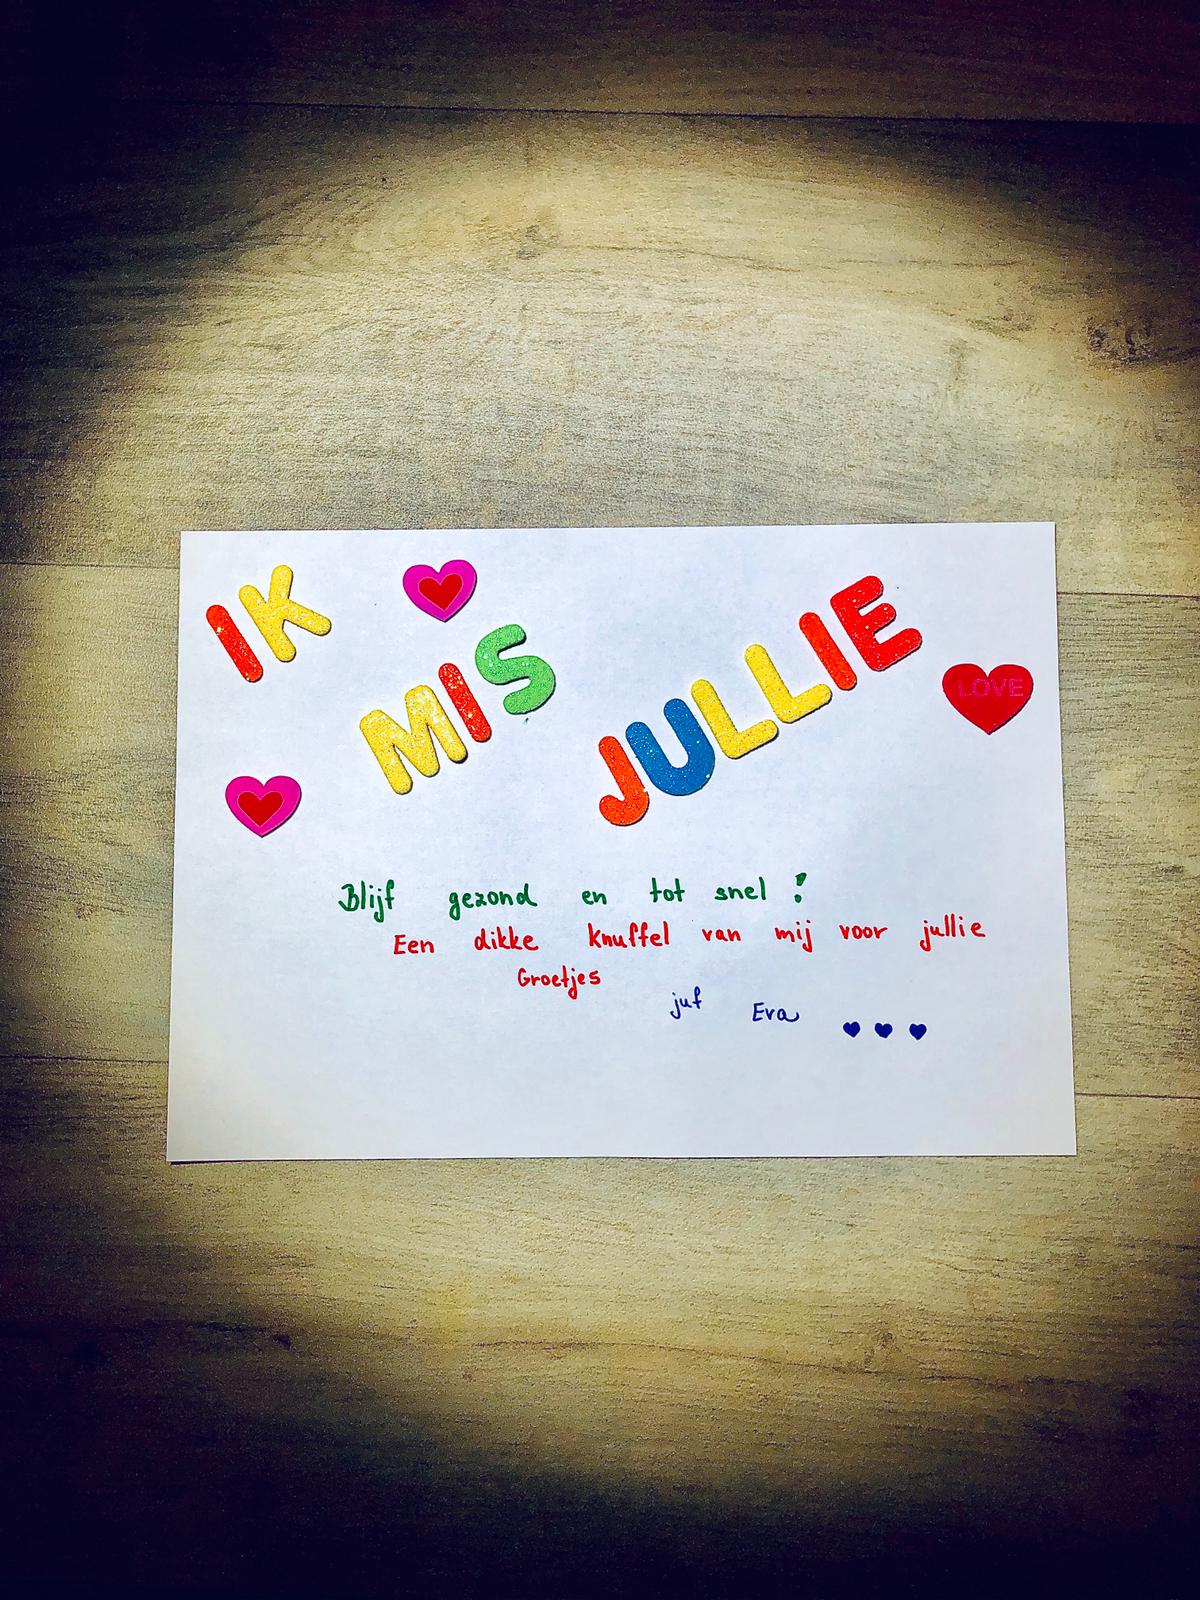 IK
MIS
JULLIE
LOVE
Blijf gezond en tot snel !
Een dikke knuffel van mij voor jullie
Groetjes
juf Eva